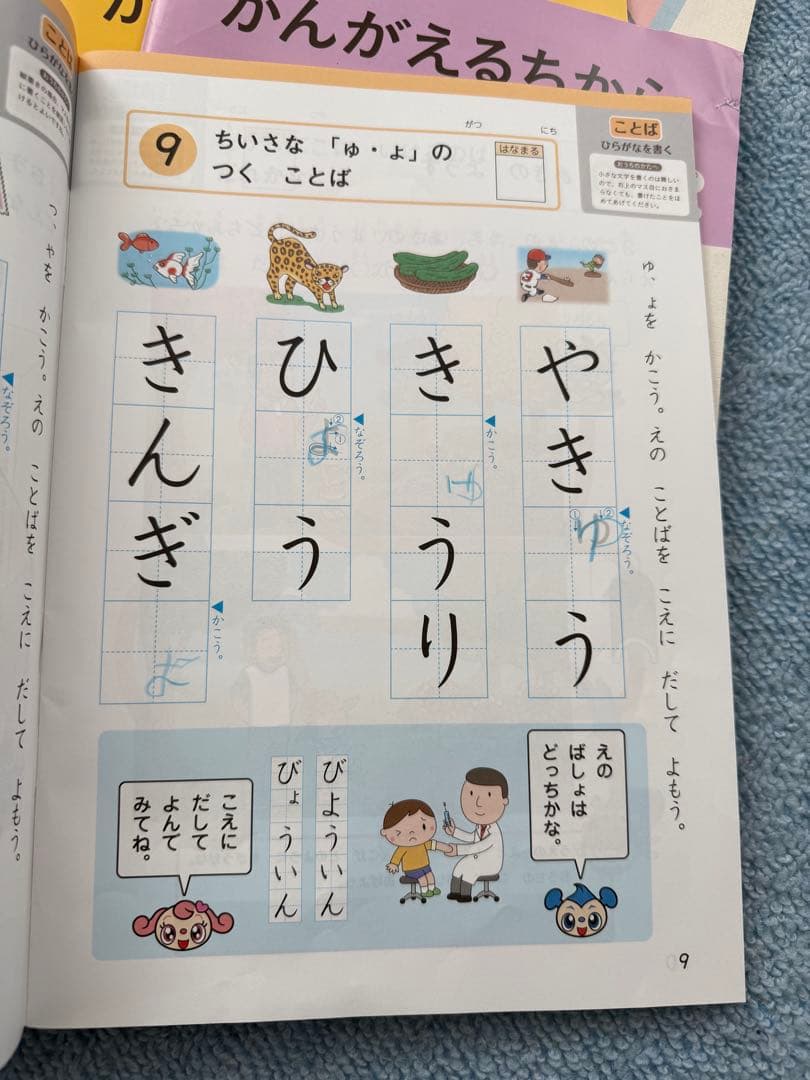 かんがえるちから
ことば
ひらがなを書く
おうちのかたへ
小さな文字を書くのは難しい
ので、右上のマス目におさま
らなくても、書けたことをほ
めてあげてください。
9
ちいさな 「ゅ・ょ」の
つく ことば
がつ
にち
はなまる
ゅ、ょを かこう。えの ことばを こえに だして よもう。
やきゅう
なぞろう。
① ②
きゅうり
かこう。
ひょう
なぞろう。
② ①
きんぎょ
かこう。
えの
ばしょは
どっちかな。
びよういん
びょういん
こえに
だして
よんて
みてね。
9
ことば
つ、やを かこう。えの ことばを こえに だして よもう。
なぞろう。